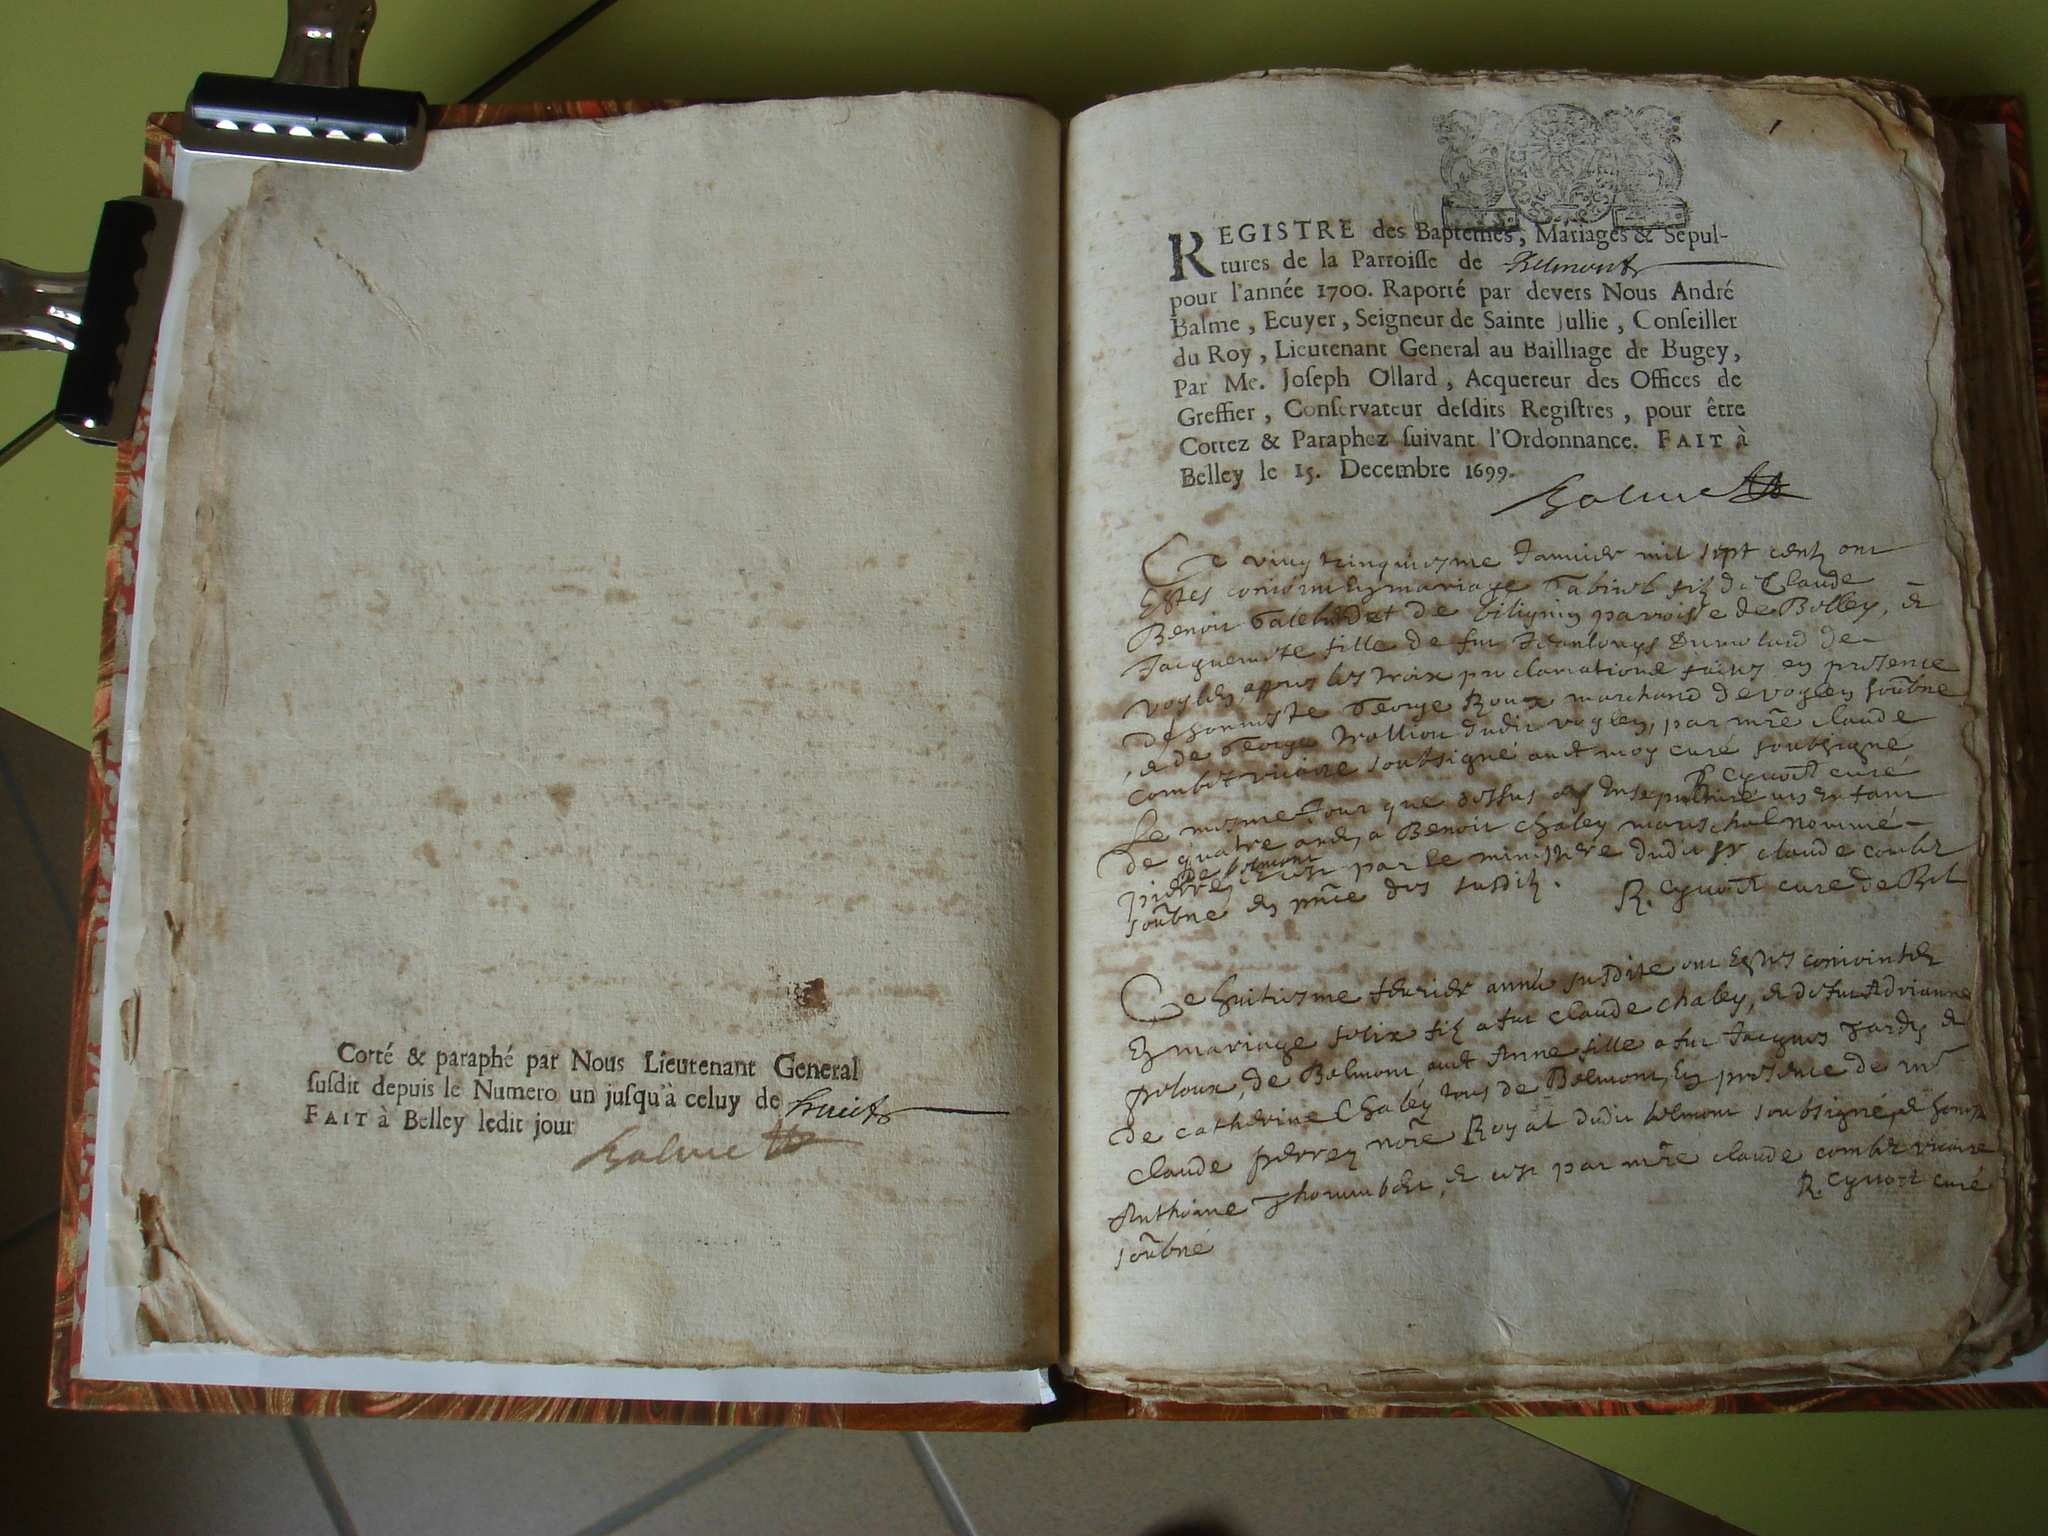 Cotté & paraphé par Nous Lieutenant General
susdit depuis le Numero un jusqu'à celuy de huict
FAIT à Belley ledit jour
Balme
1
REGISTRE des Baptemes, Mariages & Sepul-
tures de la Parroisse de Belmont
pour l'année 1700. Raporté par devers Nous André
Balme, Ecuyer, Seigneur de Sainte Jullie, Conseiller
du Roy, Lieutenant General au Bailliage de Bugey,
Par Me. Joseph Ollard, Acquereur des Offices de
Greffier, Conservateur desdits Registres, pour être
Cottez & Paraphez suivant l'Ordonnance. FAIT à
Belley le 15. Decembre 1699.
Balme
Ce vingt cinquiesme Januier mil sept cents ont
Estes conioint En mariage fils de Claude
Benoit de parroisse de Belley, &
Jacquemete fille de fut Jeanlouys Dumolard de
apres les trois proclamations faites en presence
de honneste George Roux marchand de vogley soubné
, & de George dudit vogley, par mre claude
combet vicaire soubsigné auct moy curé soubsigné
R. curé
Le mesme Jour que dessus ensepulturé un Enfant
de quatre ans, a Benoit Chaley mareschal nommé
de belmont
pierre & ce par le ministere dudit sr claude combet
soubné en pnce des susdits. R. curé de Bel
Ce huitiesme feurier année susdite ont Estes conioints
En mariage felix fils a fut Claude Chaley, & de fut Adrianne
peloux, de Belmont auct Anne fille a fut Jacques Jardin &
de catherine Chaley tous de Belmont, En presence de mr
Claude perrey nore Royal dudit belmont soubsigné, & honeste
Anthoine & ce par mre claude combet vicaire
soubné R. curé